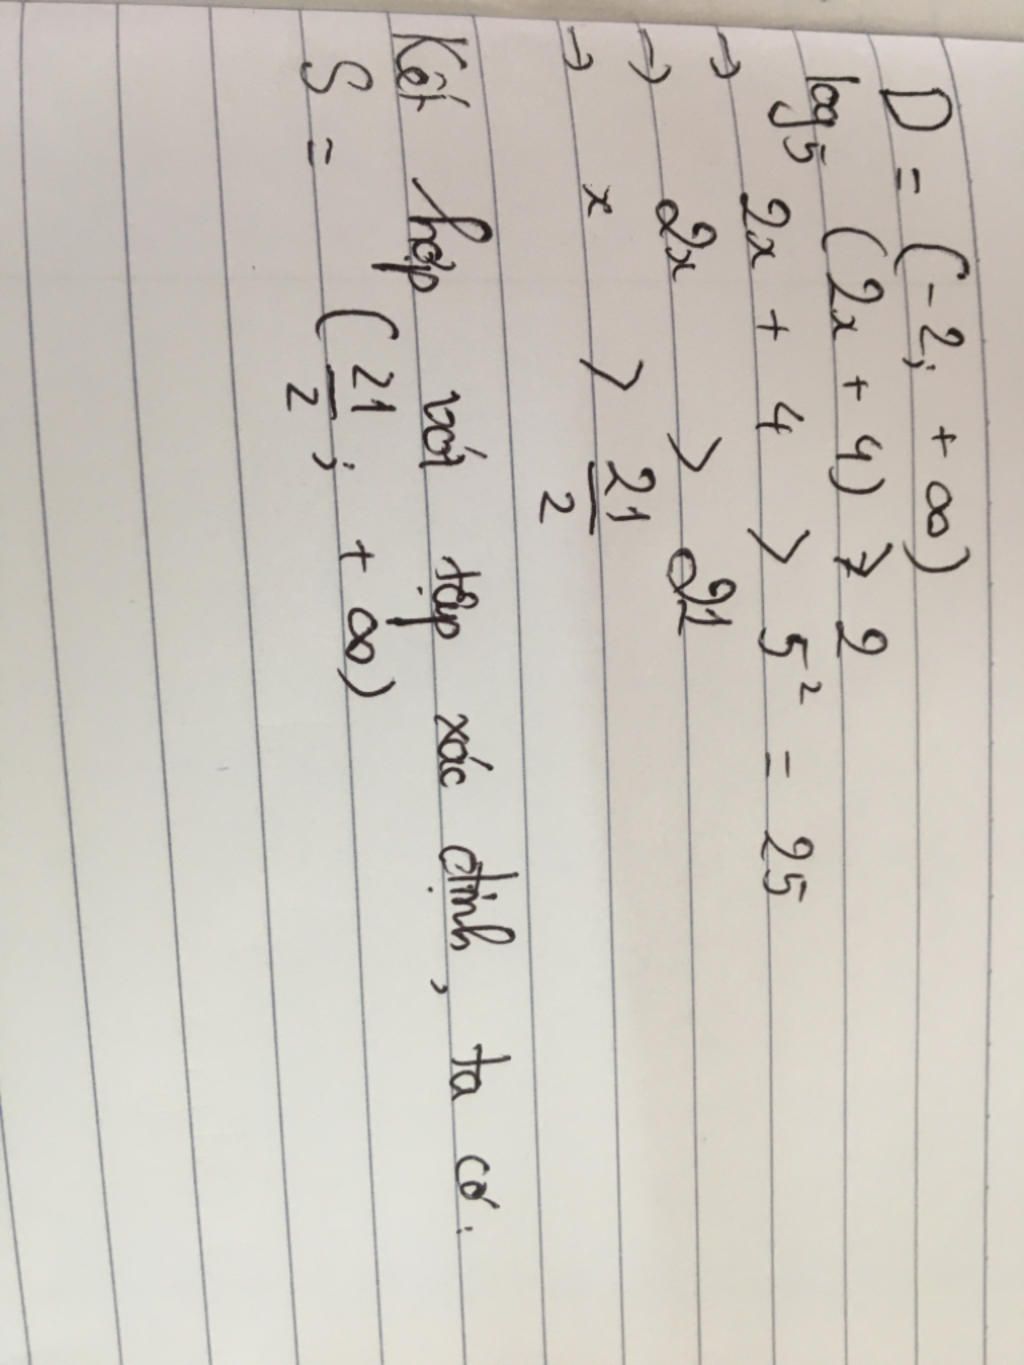 D = (-2; +∞)
log₅ (2x + 4) > 2
→ 2x + 4 > 5² = 25
→ 2x > 21
→ x > 21/2
Kết hợp với tập xác định, ta có:
S = (21/2; +∞)